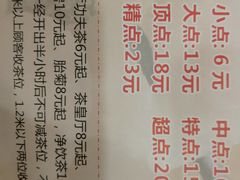 小点：6元
大点：13元
顶点：18元
精点：23元
中点：1
特点：15
超点：20
功夫茶6元起、茶皇厅8元起、
10元起、胎菊8元起，净饮茶1
米以上顾客收茶位，1.2米以下两位收
经开出半小时后不可减茶位，